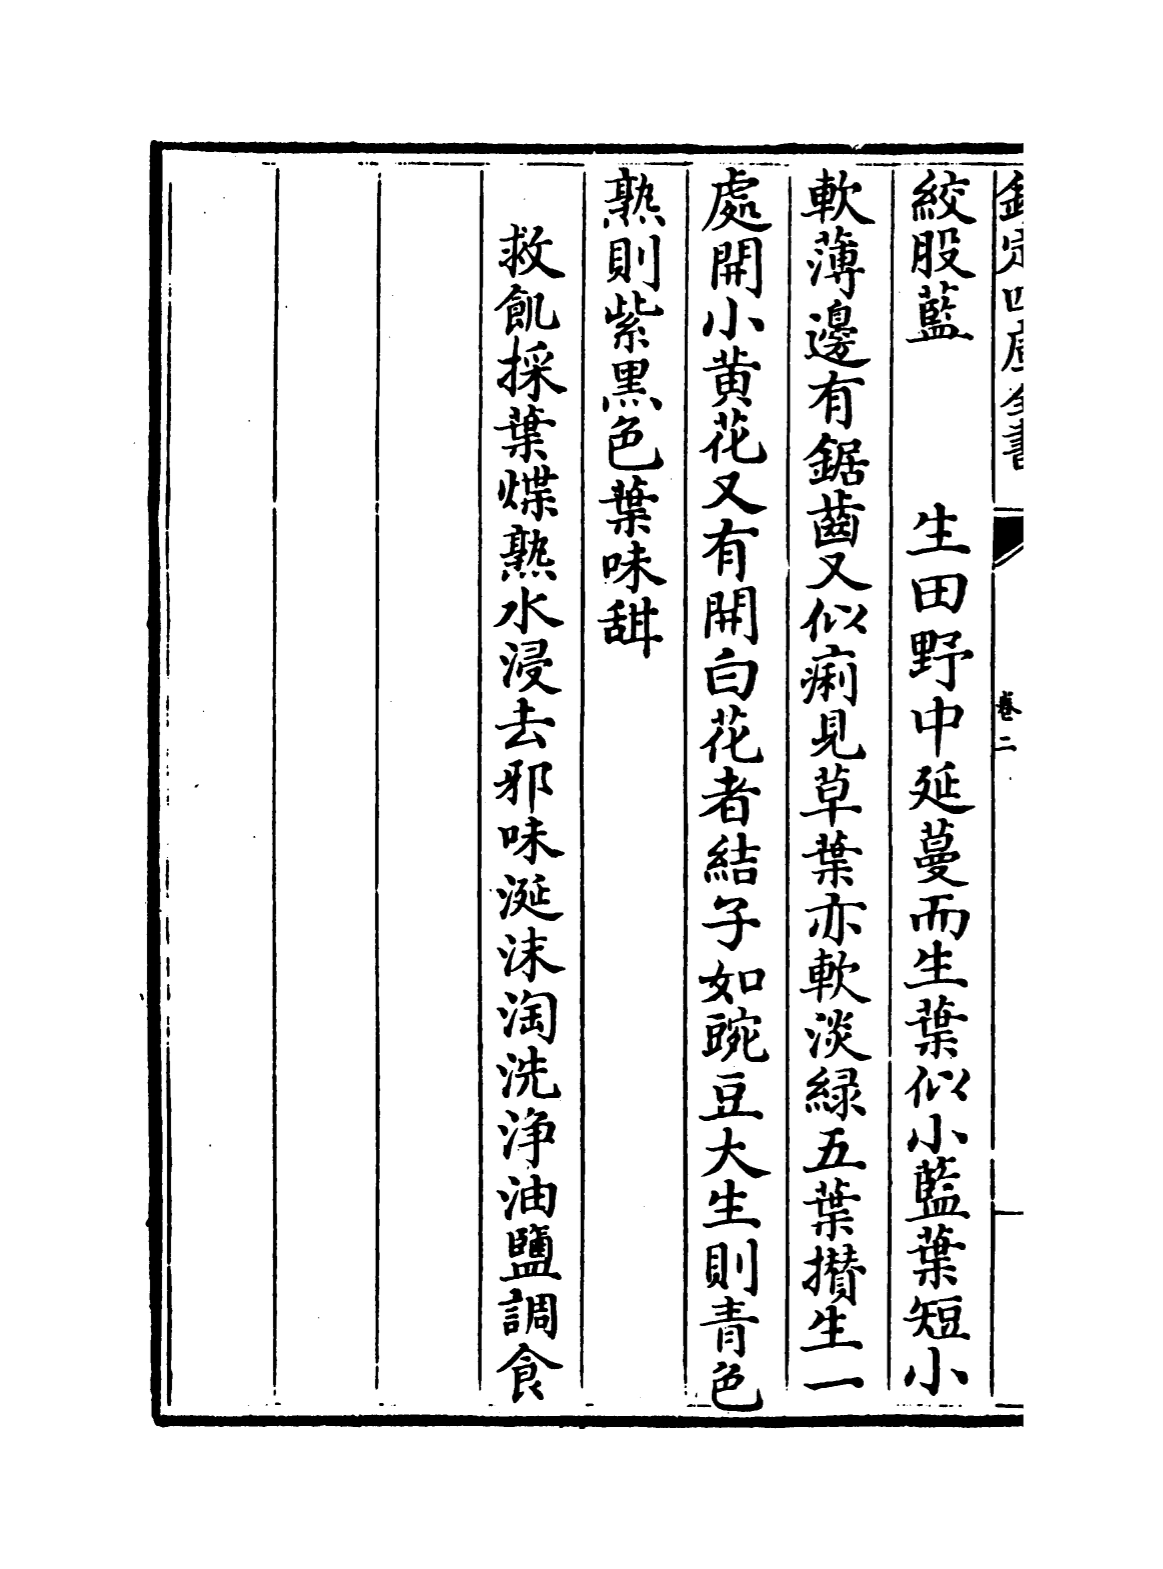 欽定四庫全書
卷二
絞股藍　生田野中延蔓而生葉似小藍葉短小
軟薄邊有鋸齒又似痢見草葉亦軟淡緑五葉攅生一
處開小黄花又有開白花者結子如豌豆大生則青色
熟則紫黒色葉味甜
救飢採葉煠熟水浸去邪味涎沫淘洗浄油鹽調食